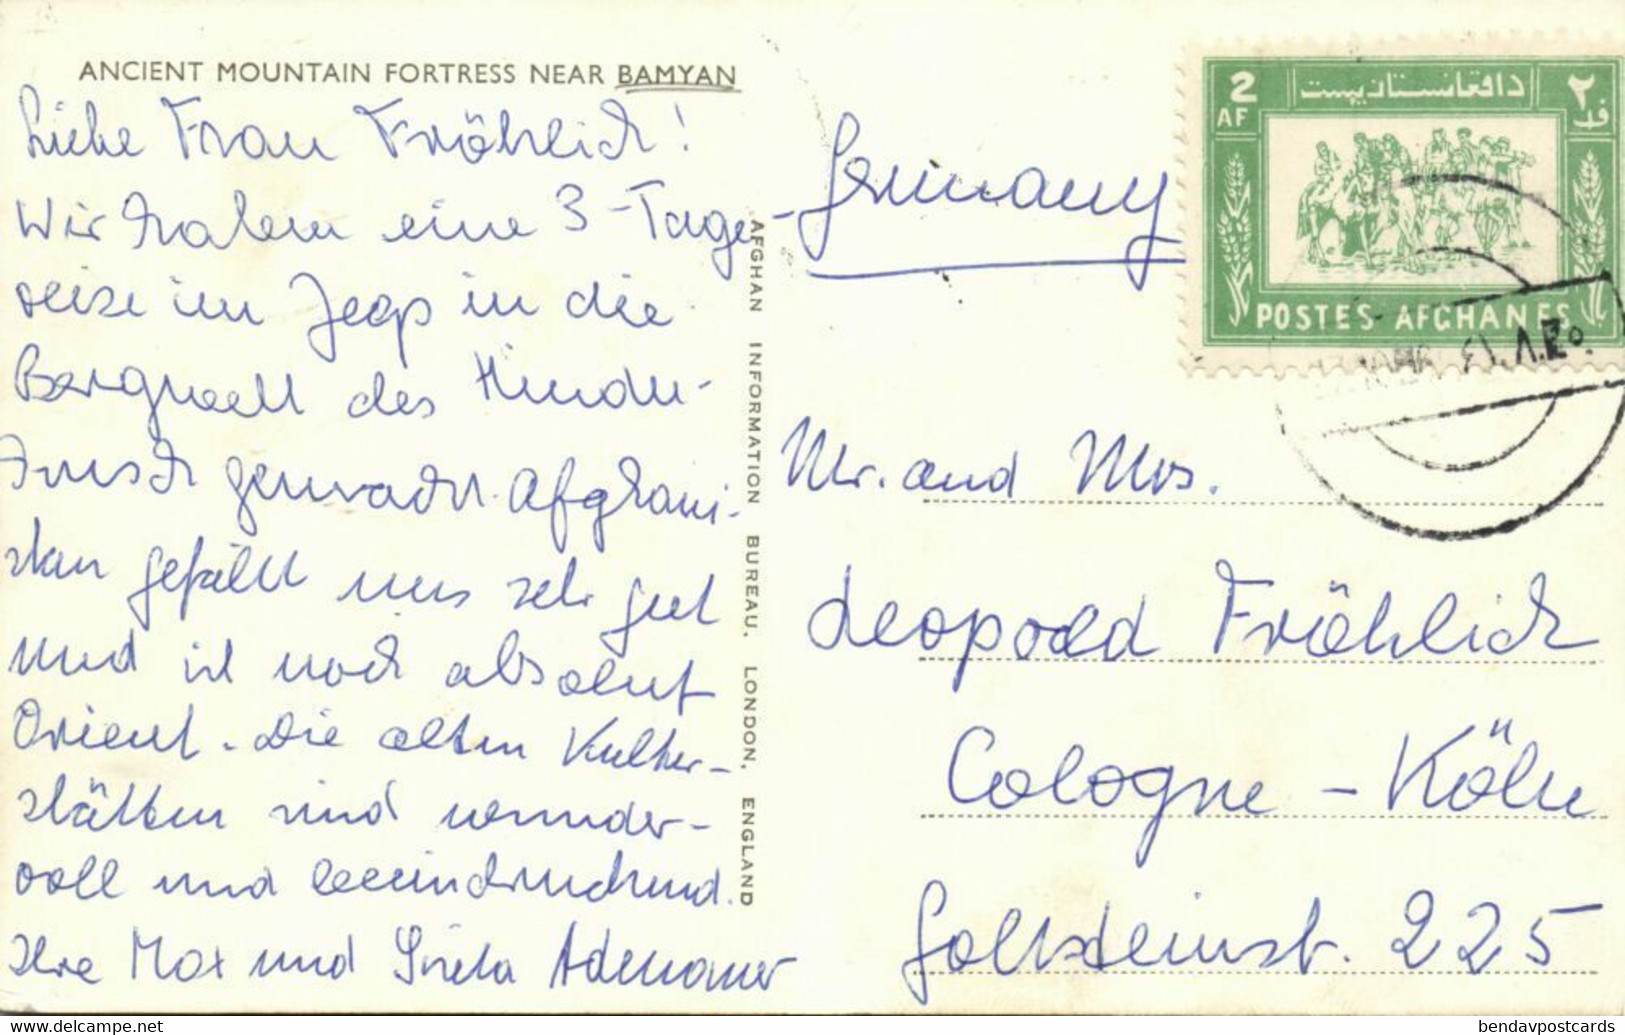 ANCIENT MOUNTAIN FORTRESS NEAR BAMYAN
Liebe Frau Fröhlich!
Wir haben eine 3-Tage-
reise im Jeep in die
Bergwelt des Hindu-
kusch gemacht. Afghani-
stan gefällt uns sehr gut
und ist noch absolut
Orient. Die alten Kultur-
stätten sind wunder-
voll und beeindruckend.
Ihre Max und Gisela Adenauer
AFGHAN INFORMATION BUREAU, LONDON, ENGLAND
2
AF
د افغانستان پست
٢
POSTES AFGHANES
Germany
Mr. and Mrs.
Leopold Fröhlich
Cologne - Köln
Goltsteinstr. 225
bendavpostcards